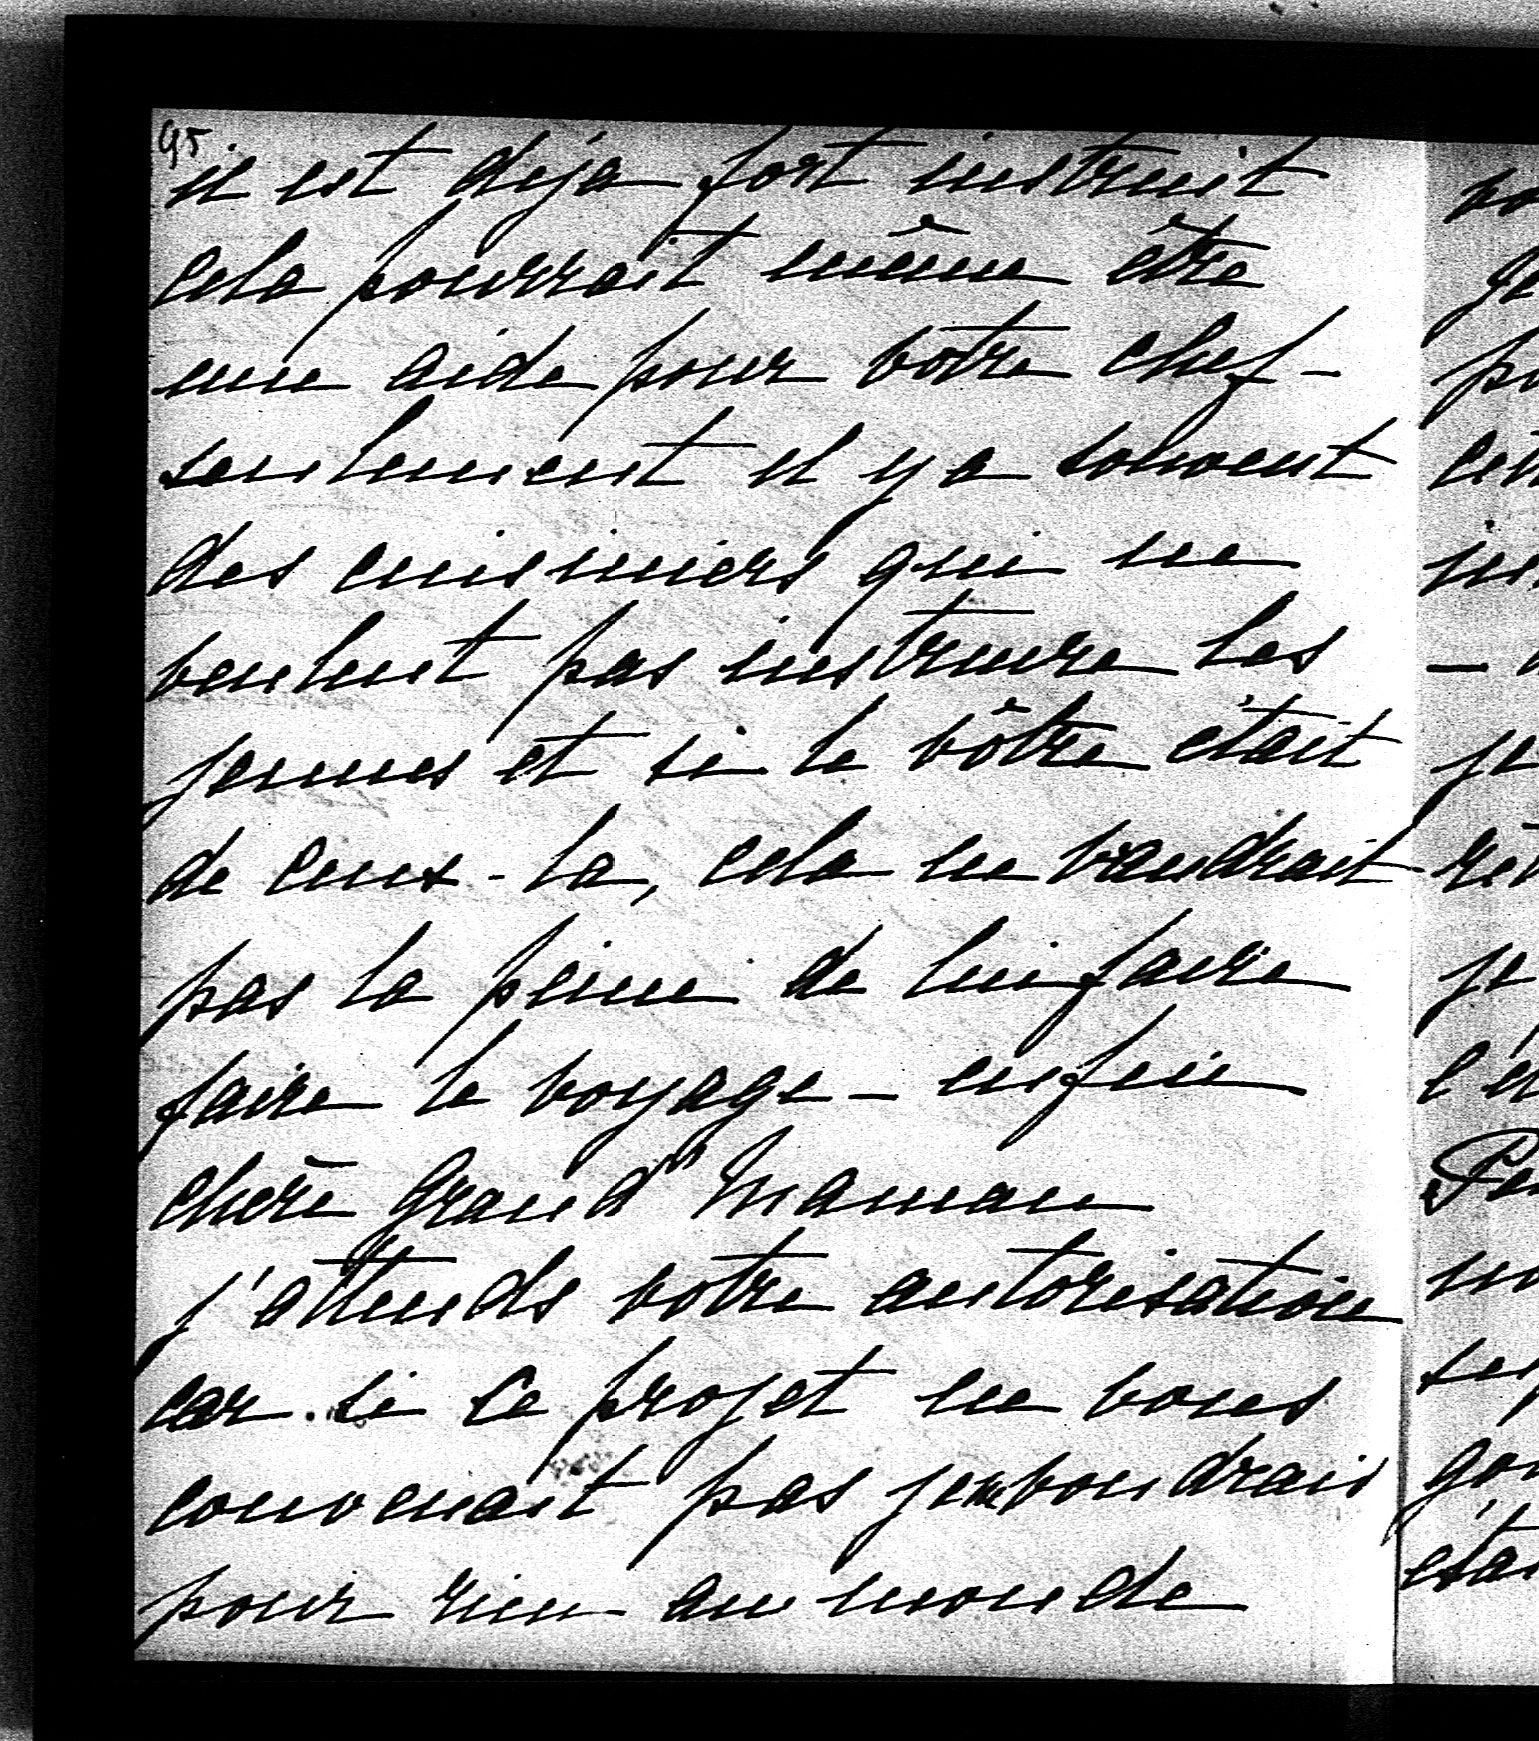 95
il est déjà fort instruit
cela pourrait même être
une aide pour votre chef -
seulement il y a souvent
des cuisiniers qui ne
veulent pas instruire les
jeunes et si le vôtre était
de ceux-la, cela ne vaudrait
pas la peine de lui faire
faire le voyage - enfin
chère Grand' Maman
j'attends votre autorisation
car si ce projet ne vous
convenait pas je ne voudrais
pour rien au monde